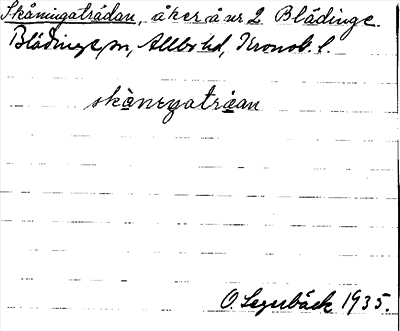 Skåningatrådan, åker å nr 2 Blädinge.
Blädinge sn, Allbo hd, Kronob. l.
skåneŋatråan
O. Segerbäck 1935.